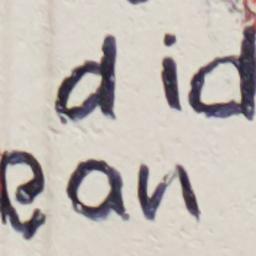 did
ean